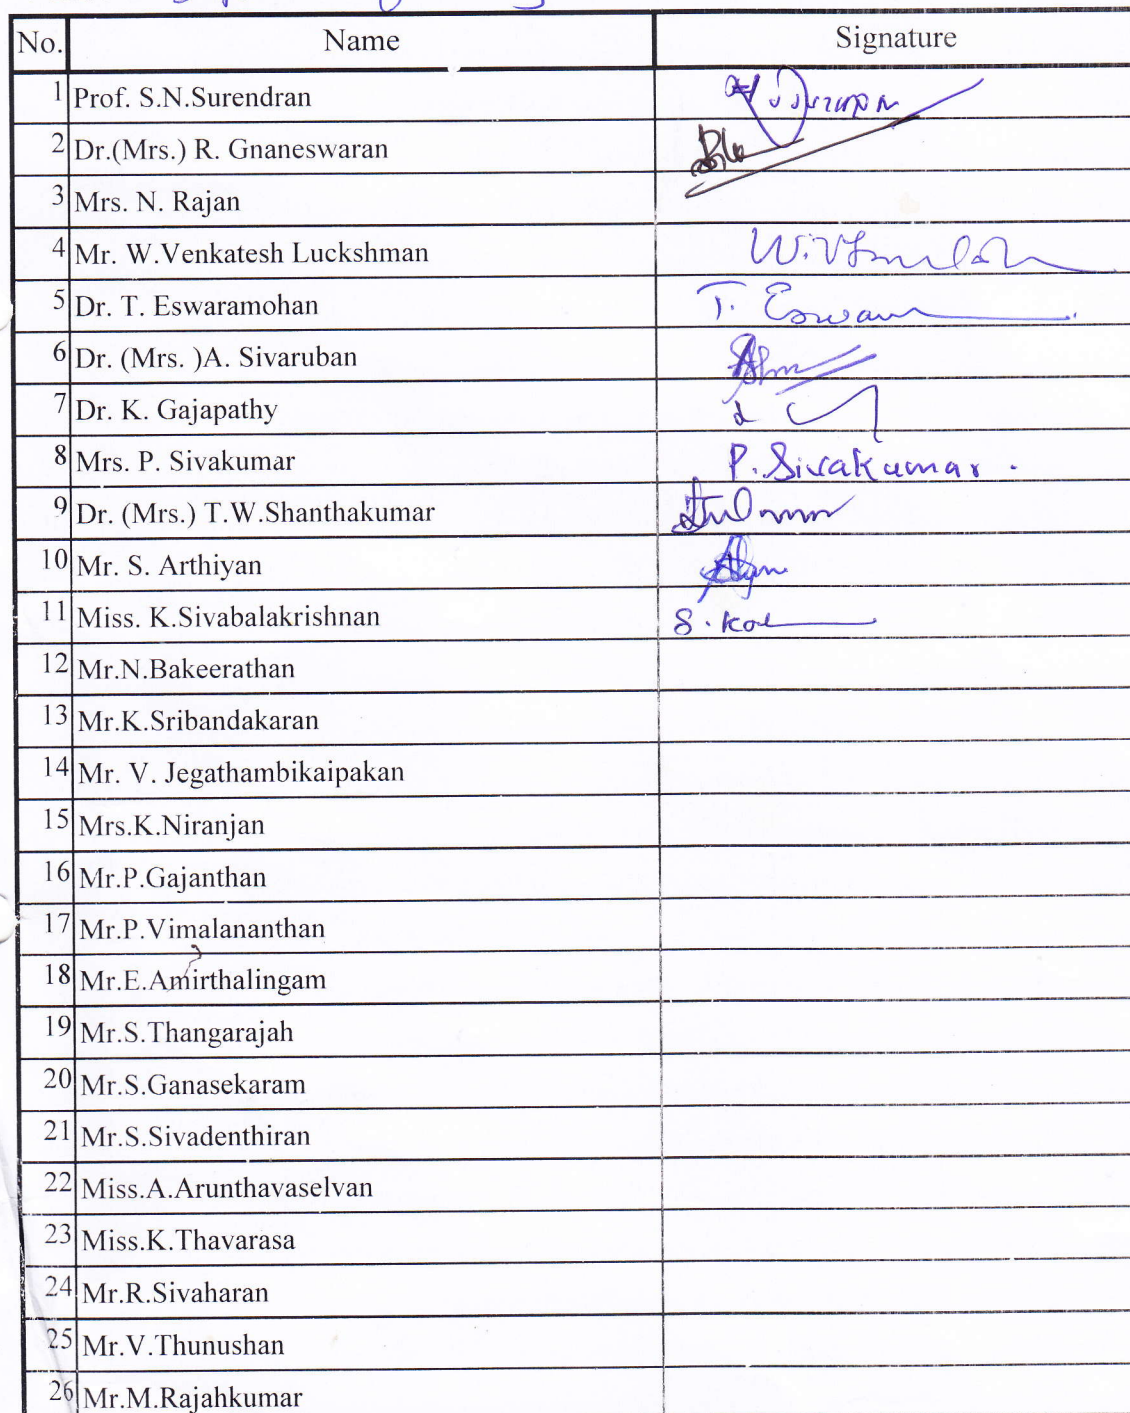 No. Name Signature
1 Prof. S.N.Surendran
2 Dr.(Mrs.) R. Gnaneswaran
3 Mrs. N. Rajan
4 Mr. W.Venkatesh Luckshman
5 Dr. T. Eswaramohan T.
6 Dr. (Mrs. )A. Sivaruban
7 Dr. K. Gajapathy
8 Mrs. P. Sivakumar P. Sivakumar.
9 Dr. (Mrs.) T.W.Shanthakumar
10 Mr. S. Arthiyan
11 Miss. K.Sivabalakrishnan
12 Mr.N.Bakeerathan
13 Mr.K.Sribandakaran
14 Mr. V. Jegathambikaipakan
15 Mrs.K.Niranjan
16 Mr.P.Gajanthan
17 Mr.P.Vimalananthan
18 Mr.E.Amirthalingam
19 Mr.S.Thangarajah
20 Mr.S.Ganasekaram
21 Mr.S.Sivadenthiran
22 Miss.A.Arunthavaselvan
23 Miss.K.Thavarasa
24 Mr.R.Sivaharan
25 Mr.V.Thunushan
26 Mr.M.Rajahkumar